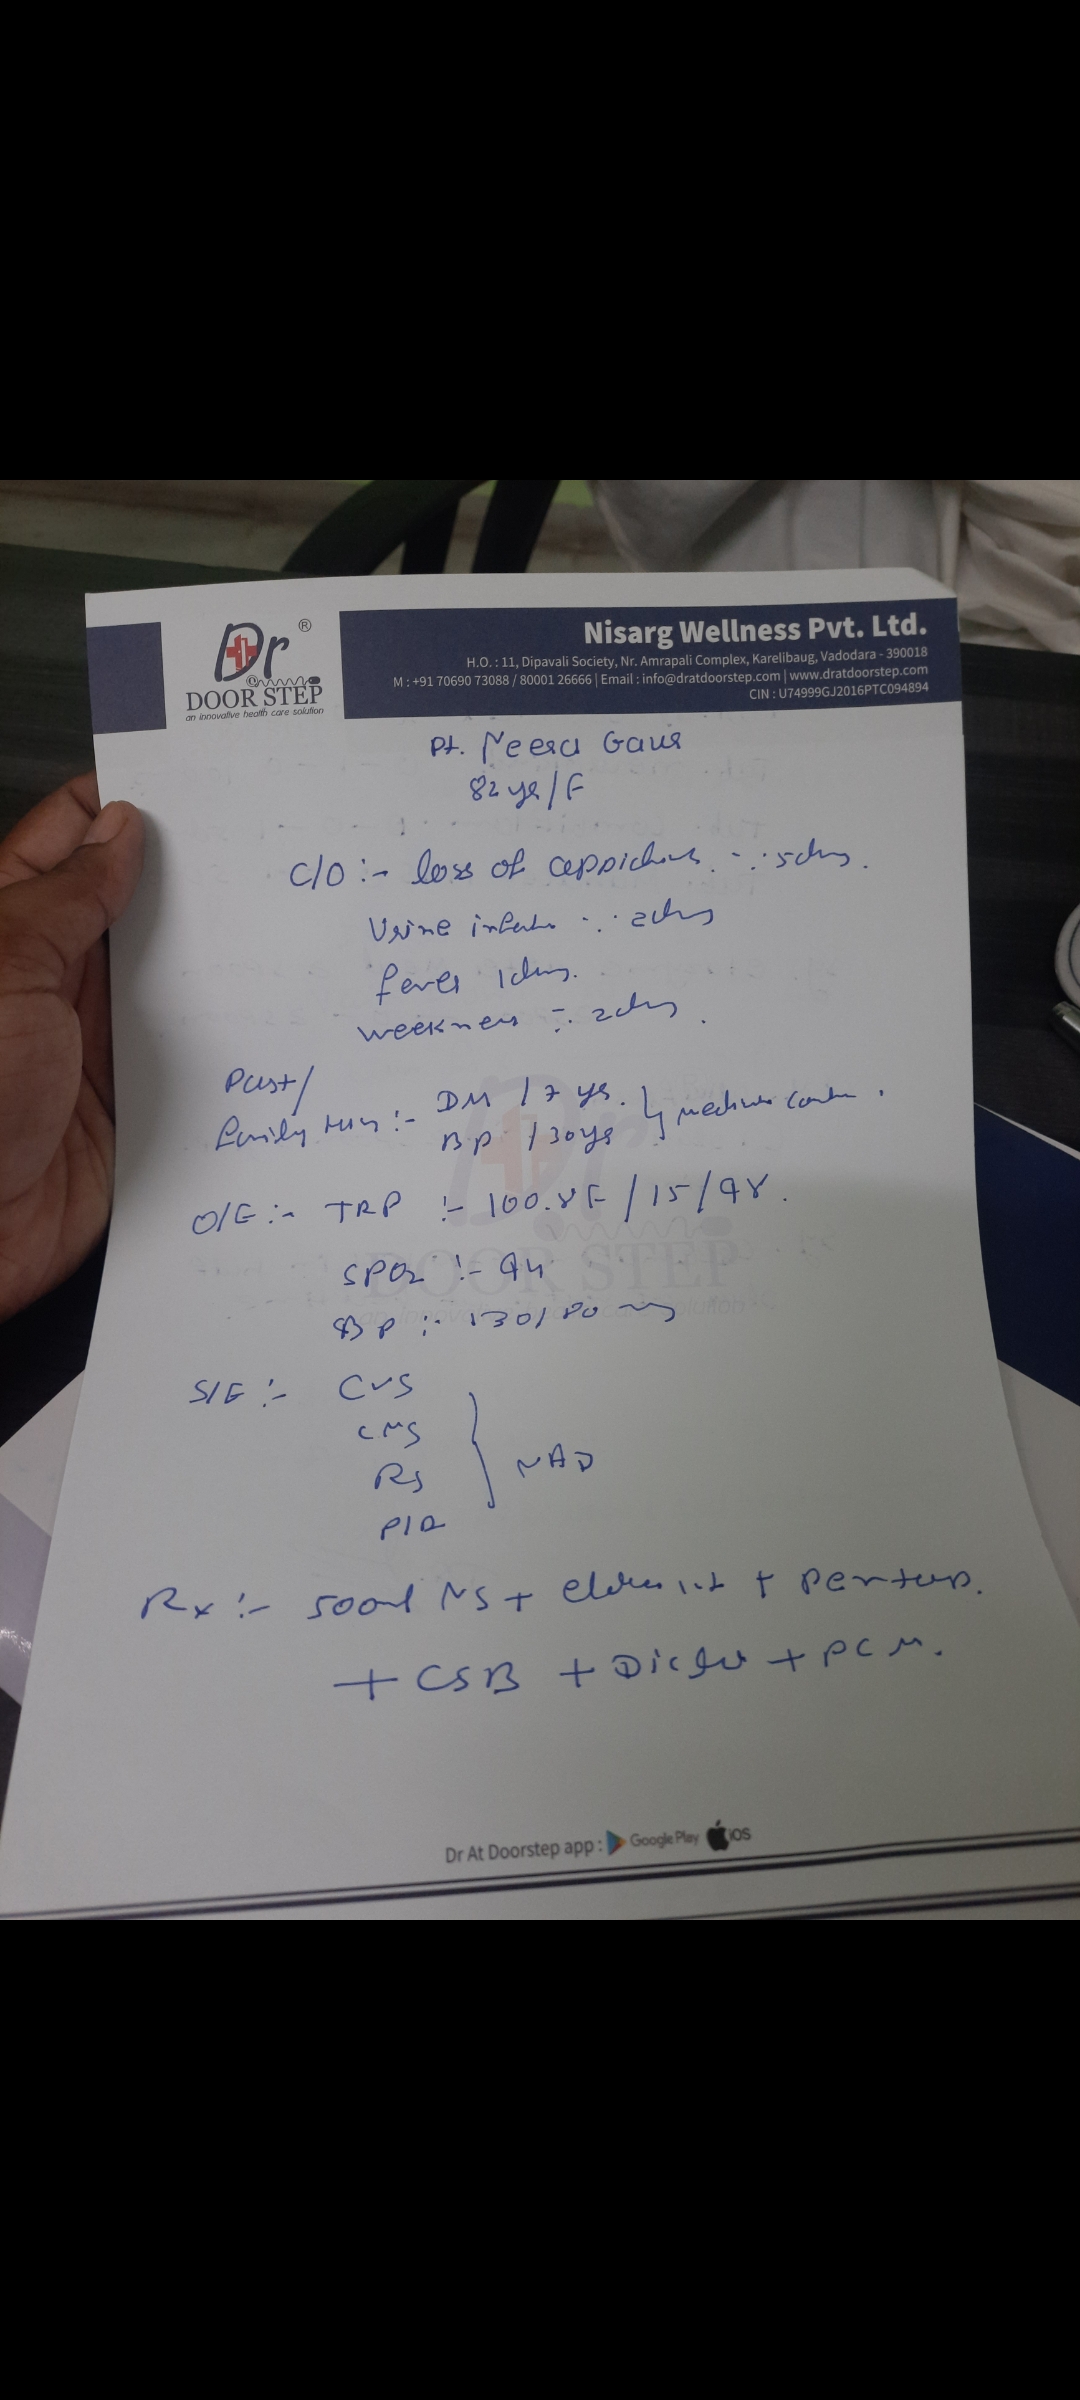 Dr ®
DOOR STEP
an innovative health care solution
Nisarg Wellness Pvt. Ltd.
H.O. : 11, Dipavali Society, Nr. Amrapali Complex, Karelibaug, Vadodara - 390018
M : +91 70690 73088 / 80001 26666 | Email : info@dratdoorstep.com | www.dratdoorstep.com
CIN : U74999GJ2016PTC094894
Pt. Gaur
82 yrs/F
C/O :- loss of 5days.
Urine 2days
fever 1day.
weekness 2days.
Past/
family :- DM / 7 yrs.
BP / 30yrs
O/E :- TRP :- 100.8F / 15 / 98.
SPO2 :- 94
BP :- 130/80
S/E :- CVS
CNS
RS
P/A
NAD
Rx :- 500ml NS + +
+ + + PCM.
DOOR STEP
Dr At Doorstep app : Google Play iOS